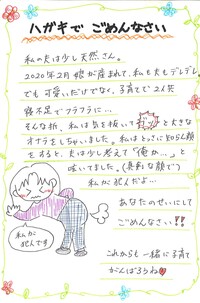 ハガキで ごめんなさい
私の夫は少し天然さん。
2020年2月 娘が産まれて、私も夫もデレデレ
でも可愛いだけでなく、子育てで2人共
寝不足でフラフラに…
そんな折、私は気を抜いて と大きな
オナラをしちゃいました。私はとっさに知らん顔
をすると、夫は少し考えて「俺か…。」と
呟いてました。(真剣な顔で)
私が犯人だよ…
あなたのせいにして
ごめんなさい!!
私が
犯人です
これからも一緒に子育て
がんばろうね